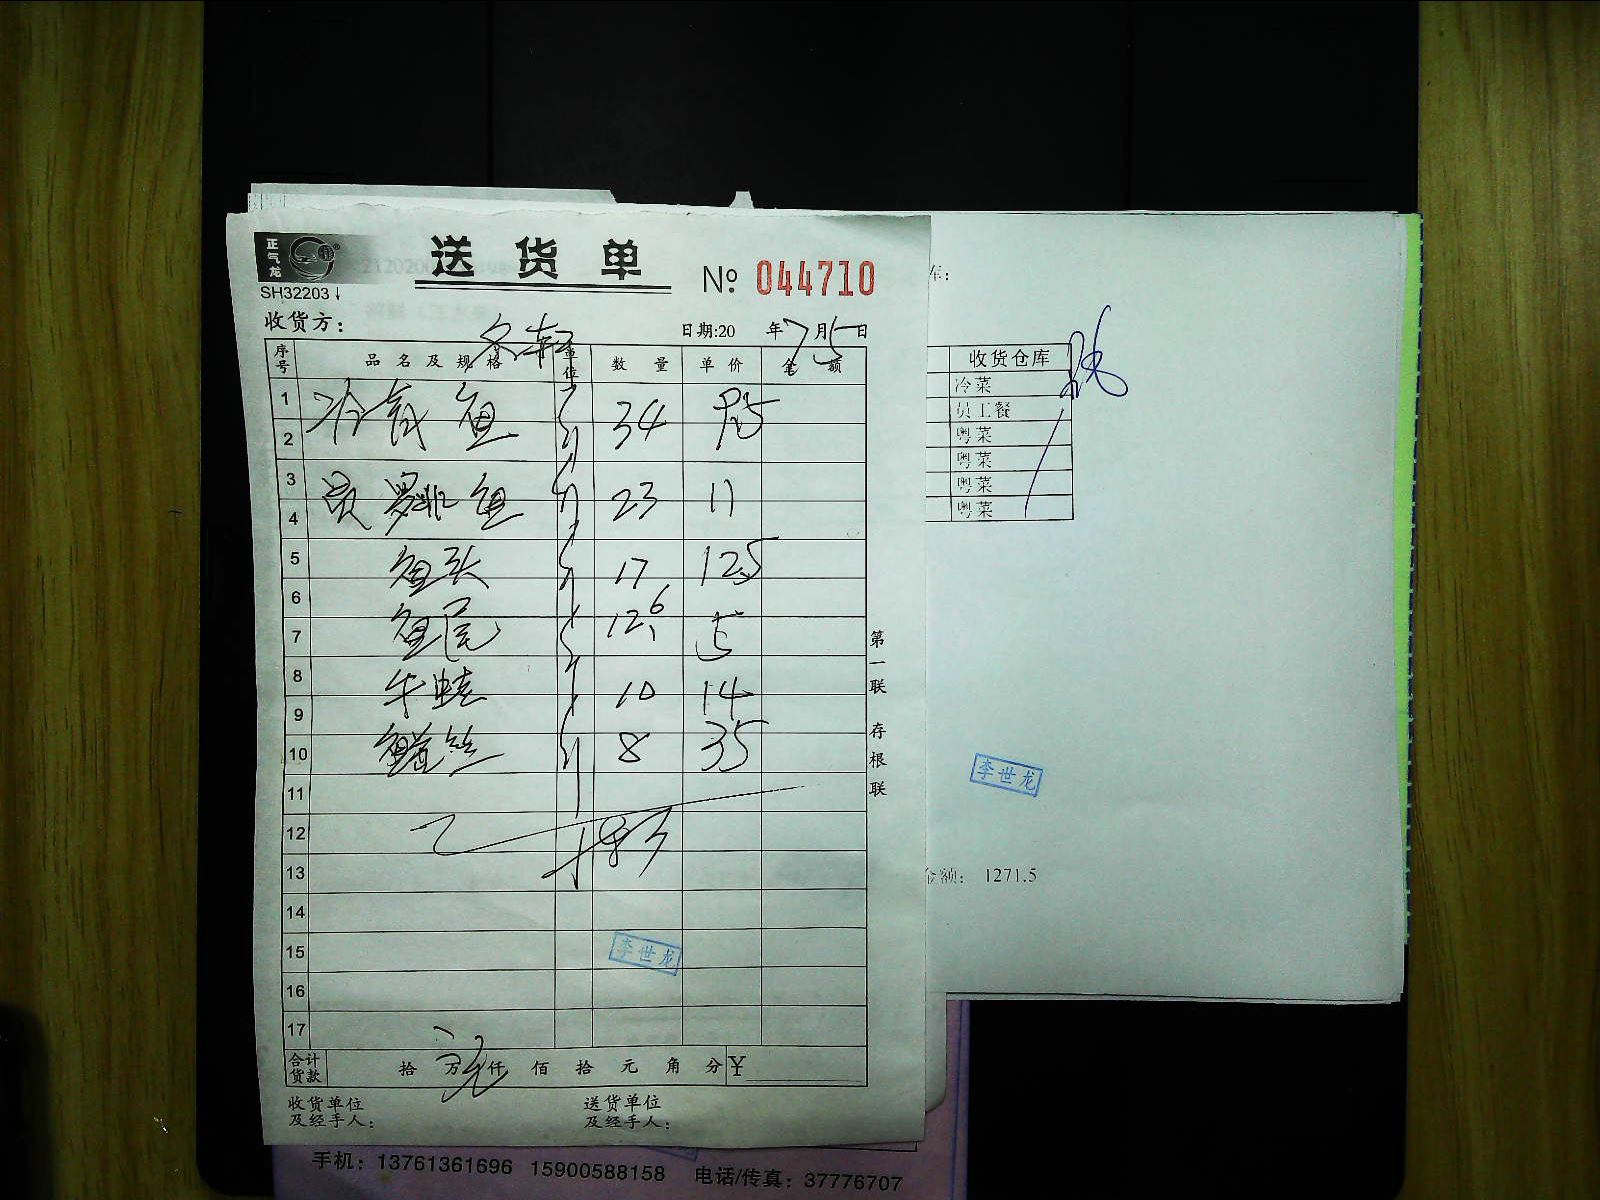 正气龙
SH32203↓
送货单
№ 044710
收货方：
日期:20 年7月5日
序号 品名及规格 单位 数量 单价 金额
1 鱼 34
2
3 鱼 23 11
4
5 鱼头 17 12.5
6
7 鱼 12.6 5
8 牛蛙 10 14
9
10 鳝丝 8 35
11
12
13
14
15 李世龙
16
17
合计货款 拾 万 仟 佰 拾 元 角 分 ¥
收货单位及经手人：
送货单位及经手人：
第一联 存根联
手机：13761361696 15900588158 电话/传真：37776707
库：
收货仓库
冷菜
员工餐
粤菜
粤菜
粤菜
粤菜
李世龙
金额： 1271.5